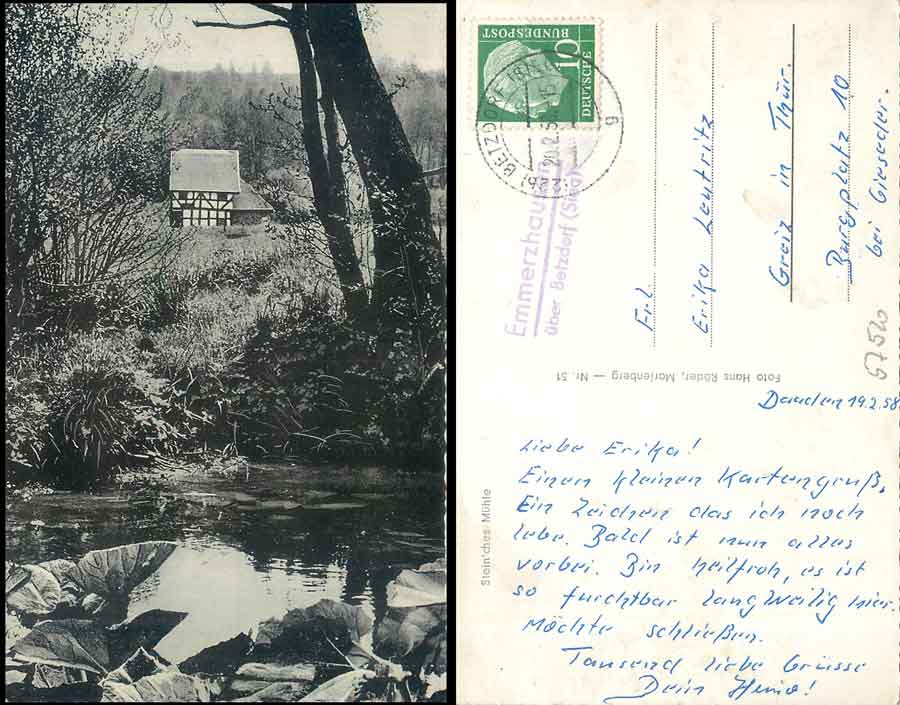 DEUTSCHE
BUNDESPOST
10
BETZDORF
20.2.5
g
Emmerzhausen
über Betzdorf (Sieg)
Frl.
Erika Leutritz
Greiz in Thür.
Burgplatz 10
bei Gieseder.
67520
Foto Hans Röder, Marienberg — Nr. 51
Stein'ches Mühle
Daaden 19.2.58.
Liebe Erika!
Einen kleinen Kartengruß,
Ein Zeichen das ich noch
lebe. Bald ist nun alles
vorbei. Bin heilfroh, es ist
so furchtbar langweilig hier.
Möchte schließen.
Tausend liebe Grüsse
Dein Heino!